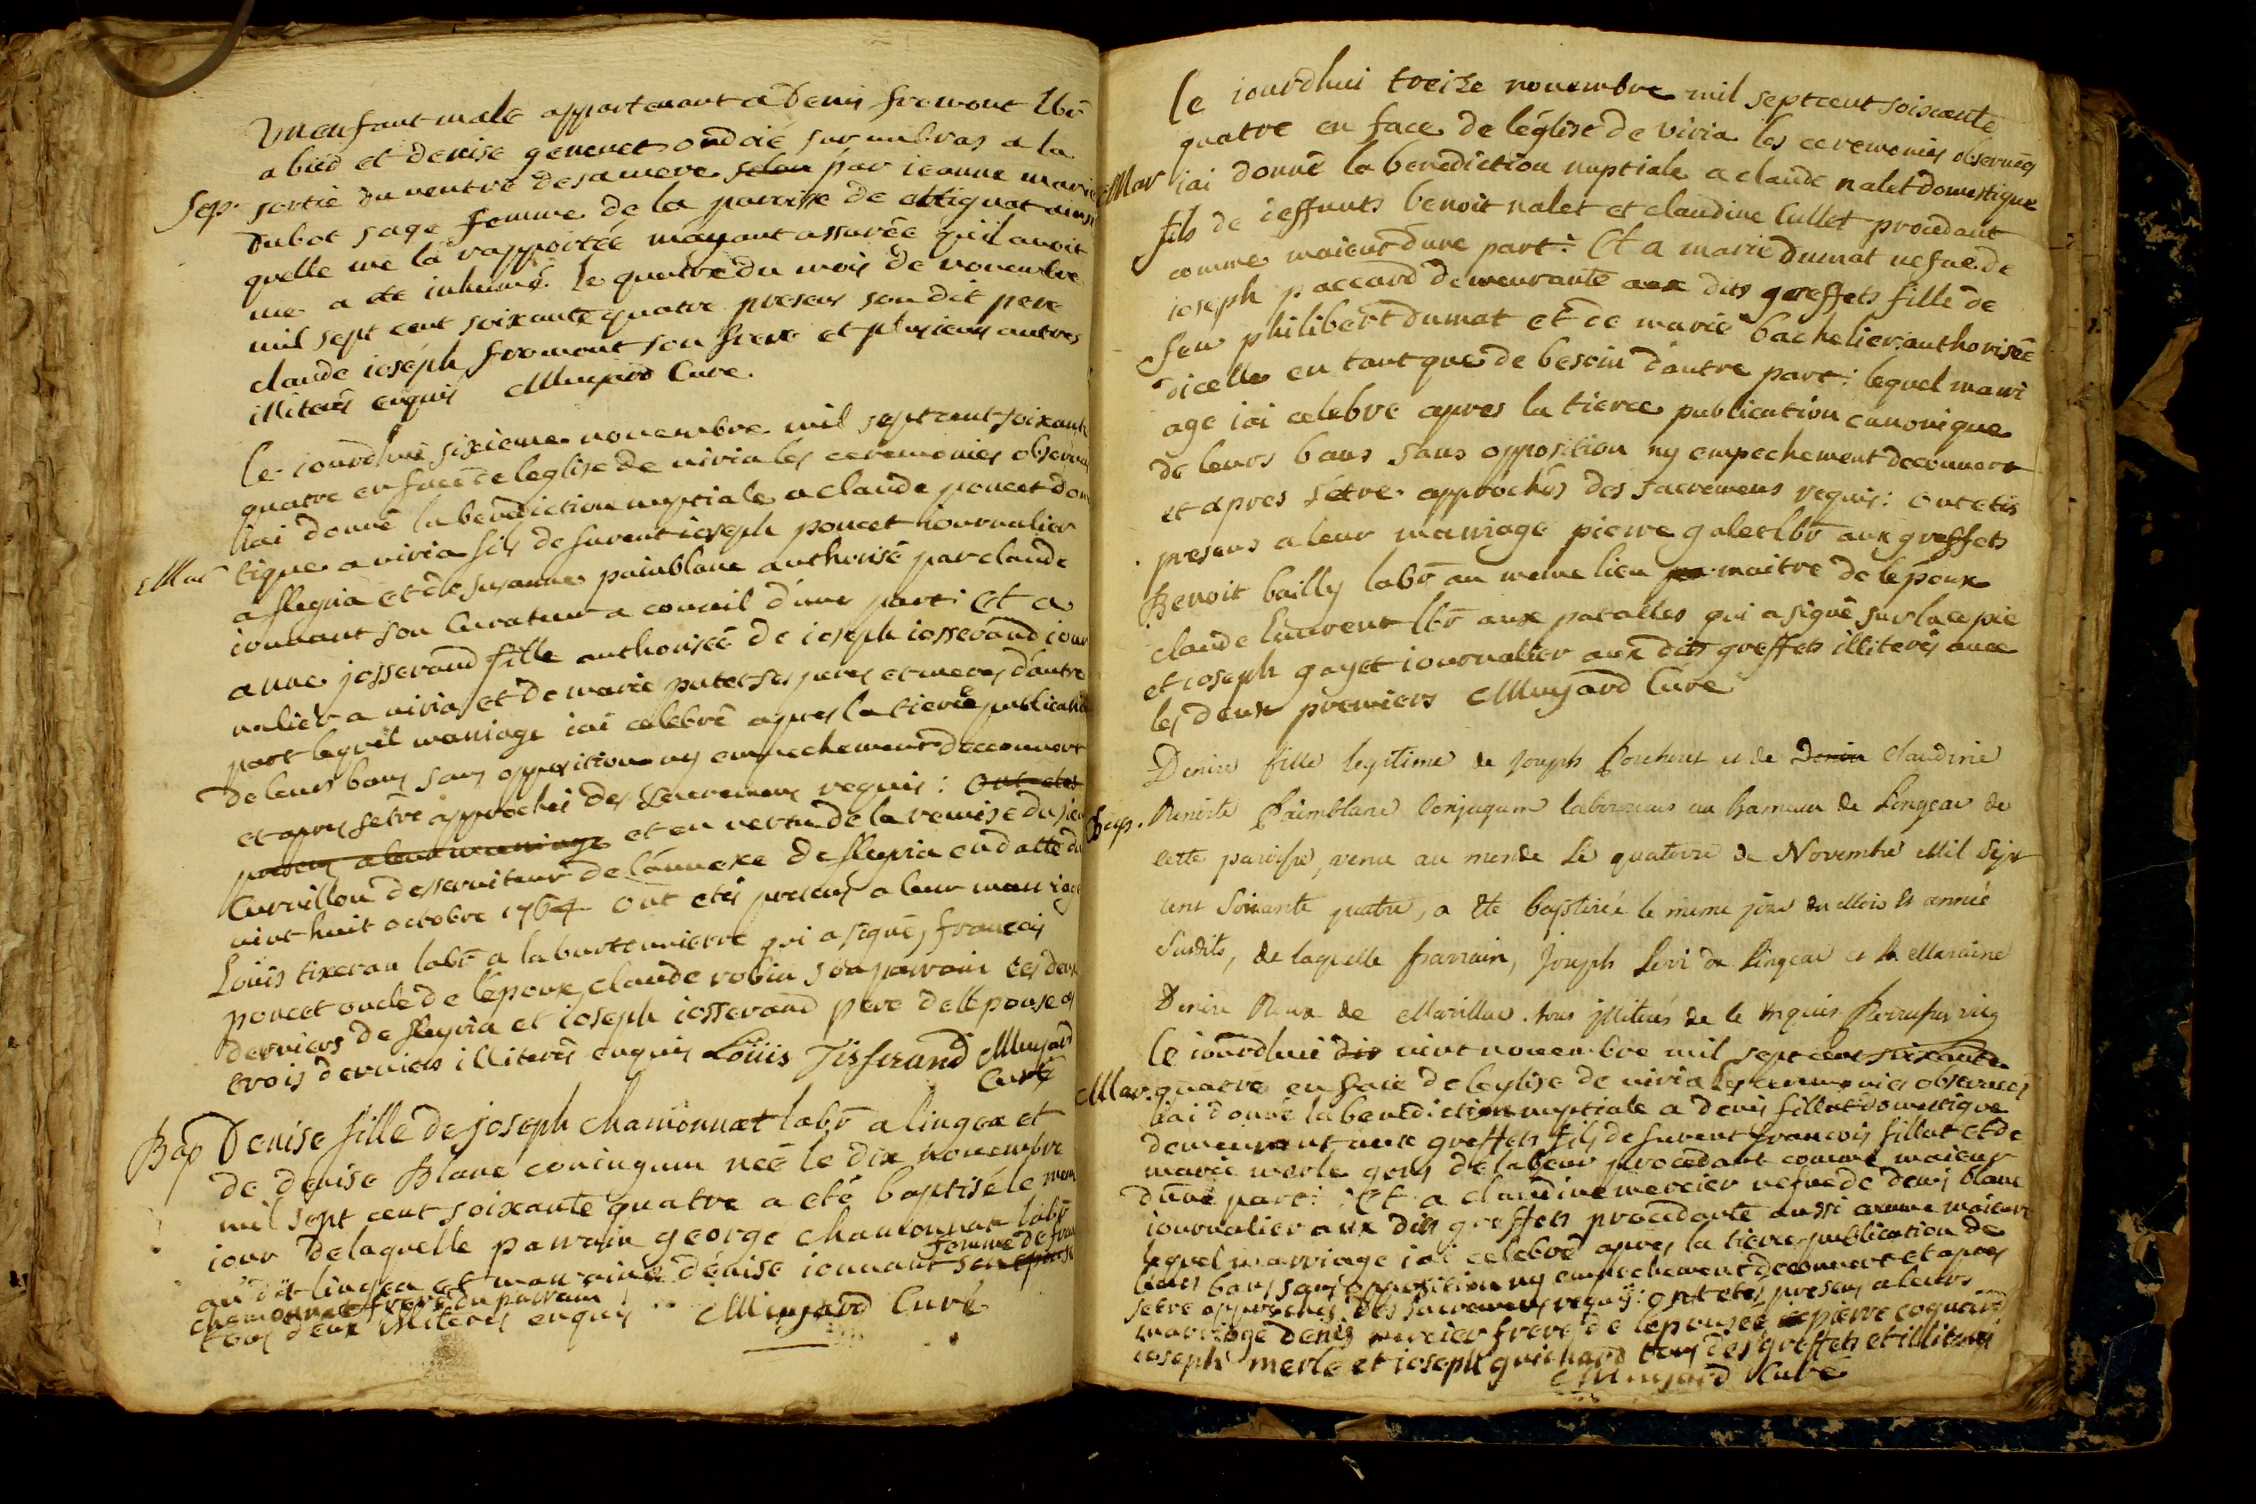 un enfant male appartenant a Denis fromont lbr
a bied et denise genevet ondoié sur un bras a la
Sep. sortie du ventre de sa mere selon par ieanne marie
dubot sage femme de la paroisse de attignat ainsi
quelle me la rapportée mayant assurée qu'il avoit
me a ete inhumé le quatre du mois de novembre
mil sept cent soixante quatre presens son dit pere
claude ioseph fromont son frere et plusieurs autres
illiterés enquis Munjard Curé.
le iourdhui sixieme novembre mil sept cent soixante
quatre en face de leglise de viria les ceremonies observées
iai donné la benediction nuptiale a claude poncet domes
Mar tique a viria fils de furent ioseph poncet iournalier
a fleyria et de susanne painblanc authorisé par claude
iounant son Curateur a conseil d'une part: Et a
anne josserand fille authorisée de ioseph iosserand iour
nalier a viria et de marie putet ses peres et meres d'autre
part lequel mariage iai celebré apres la tierce publication
de leurs bans sans opposition ny empechement decouvert
et apres setre approchés des Sacremens requis: ont etes
presens a leur mariage et en vertu de la remise du sieur
Curvillon desserviteur de l'annexe de fleyria en datte du
vint huit octobre 1764 ont etés presens a leur mariage
Loüis tixeran labr a la burtonniere qui a signé, francois
poncet oncle de lepoux, claude robin son parrain les deux
derniers de fleyria et ioseph iosserand pere de l'epouse les
trois derniers illiterés enquis Loüis Tisserand Munjard
Curé
Bap Denise fille de joseph chamonnat labr a lingea et
de denise Blanc coniugum née le dix novembre
mil sept cent soixante quatre a eté baptisé le meme
iour de laquelle parrain george chamonnat labr
au dit lingea et marraine dénise iounant son epouse
femme de fran
chamonnat frere du parrain
tous deux illiterés enquis Munjard Curé
le iourdhui treize novembre mil sept cent soixante
quatre en face de léglise de viria les ceremonies observées
Mar iai donné la benediction nuptiale a claude nalet domestique
fils de deffunts benoit nalet et claudine Cullet procedant
comme maieur dune part: Et a marie dumat vefve de
ioseph paccard demeurante aux dits greffets fille de
feu philibert dumat et de marie bachelier: authorisée
dicelle en tant que de besoin d'autre part: lequel mari
age iai celebre apres la tierce publication canonique
de leurs bans sans opposition ny empechement decouvert
et apres sétre approchés des sacremens requis: ont etés
presens a leur mariage pierre galet lbr aux greffets
Benoit bailly labr au meme lieu maitre de lépoux
claude laurent lbr aux paralles qui a signé sur la cepie
et ioseph gayet iournalier aux dits greffets illiterés avec
les deux premiers Munjard Curé
Denise fille legitime de Joseph Porchout et de Denise claudine
Bap. Benoite Paimblanc conjugum laboureurs au hameau de Lingeat de
cette paroisse, venue au monde Le quatorze de Novembre Mil Sept
cent Soixante quatre, a été baptisée le meme jour du Mois et année
Susdits, de laquelle parrain, Joseph Livi de Lingeat et la Maraine
Denise Roux de Marillat. tous illiterés de ce enquis Perrufus vicg
le iourdhui dix vint novembre mil sept cent soixante
Mar. quatre en face de leglise de viria les ceremonies observées
iai donné la benediction nuptiale a denis fillot domestique
demeurant aux greffets fils de furent francois fillot et de
marie merle gens de labeur procedant comme maieur
d'une part: Et a claudine mercier vefve de denis blanc
iournalier aux dits greffets procedante aussi comme maieure
lequel marriage iai celebré apres la tierce publication de
leurs bans sans opposition ny empechement decouvert et apres
setre approchés des sacremens requis: ont etés presens a leurs
marriage denis mercier frere de lepouse pierre coquard
ioseph merle et ioseph guichard tous des greffets et illiterés
Munjard Curé